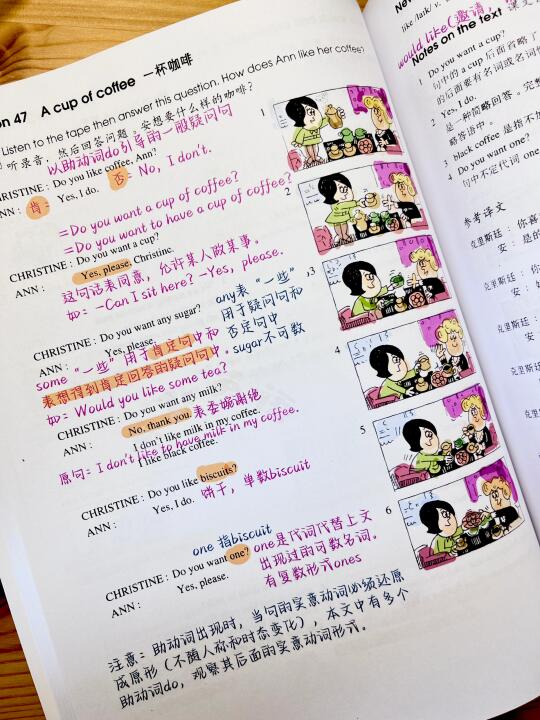 on 47 A cup of coffee 一杯咖啡
Listen to the tape then answer this question. How does Ann like her coffee?
听录音，然后回答问题，安想要什么样的咖啡？
以助动词do引导的一般疑问句
CHRISTINE: Do you like coffee, Ann?
ANN: 肯= Yes, I do. 否= No, I don't.
=Do you want a cup of coffee?
=Do you want to have a cup of coffee?
CHRISTINE: Do you want a cup?
ANN: Yes, please, Christine.
这句话表同意，允许某人做某事。
如：-Can I sit here? -Yes, please.
CHRISTINE: Do you want any sugar?
ANN: Yes, please.
any表"一些"，
用于疑问句和
否定句中
sugar不可数
some "一些"用于肯定句中和
表想得到肯定回答的疑问句中。
如：Would you like some tea?
CHRISTINE: Do you want any milk?
ANN: No, thank you. 表委婉谢绝
I don't like milk in my coffee.
I like black coffee.
原句=I don't like to have milk in my coffee.
CHRISTINE: Do you like biscuits?
ANN: Yes, I do. 饼干，单数biscuit
one 指biscuit
CHRISTINE: Do you want one?
ANN: Yes, please.
one是代词代替上文
出现过的可数名词。
有复数形式ones
注意：助动词出现时，当句的实意动词必须还原
成原形（不随人称和时态变化），本文中有多个
助动词do，观察其后面的实意动词形式。
1
2
3
4
5
6
New
like /laik/ v.
would like（邀请，
Notes on the text 课文
1 Do you want a cup?
句中的 a cup 后面省略了
的后面要有名词或名词
2 Yes, I do.
是一种简略回答。完整
略答语中。
3 black coffee 是指不加
4 Do you want one?
句中不定代词 one
参考译文
克里斯廷： 你喜
安： 是的
克里斯廷： 你
安：
克里斯廷： 你
安：
克里斯廷